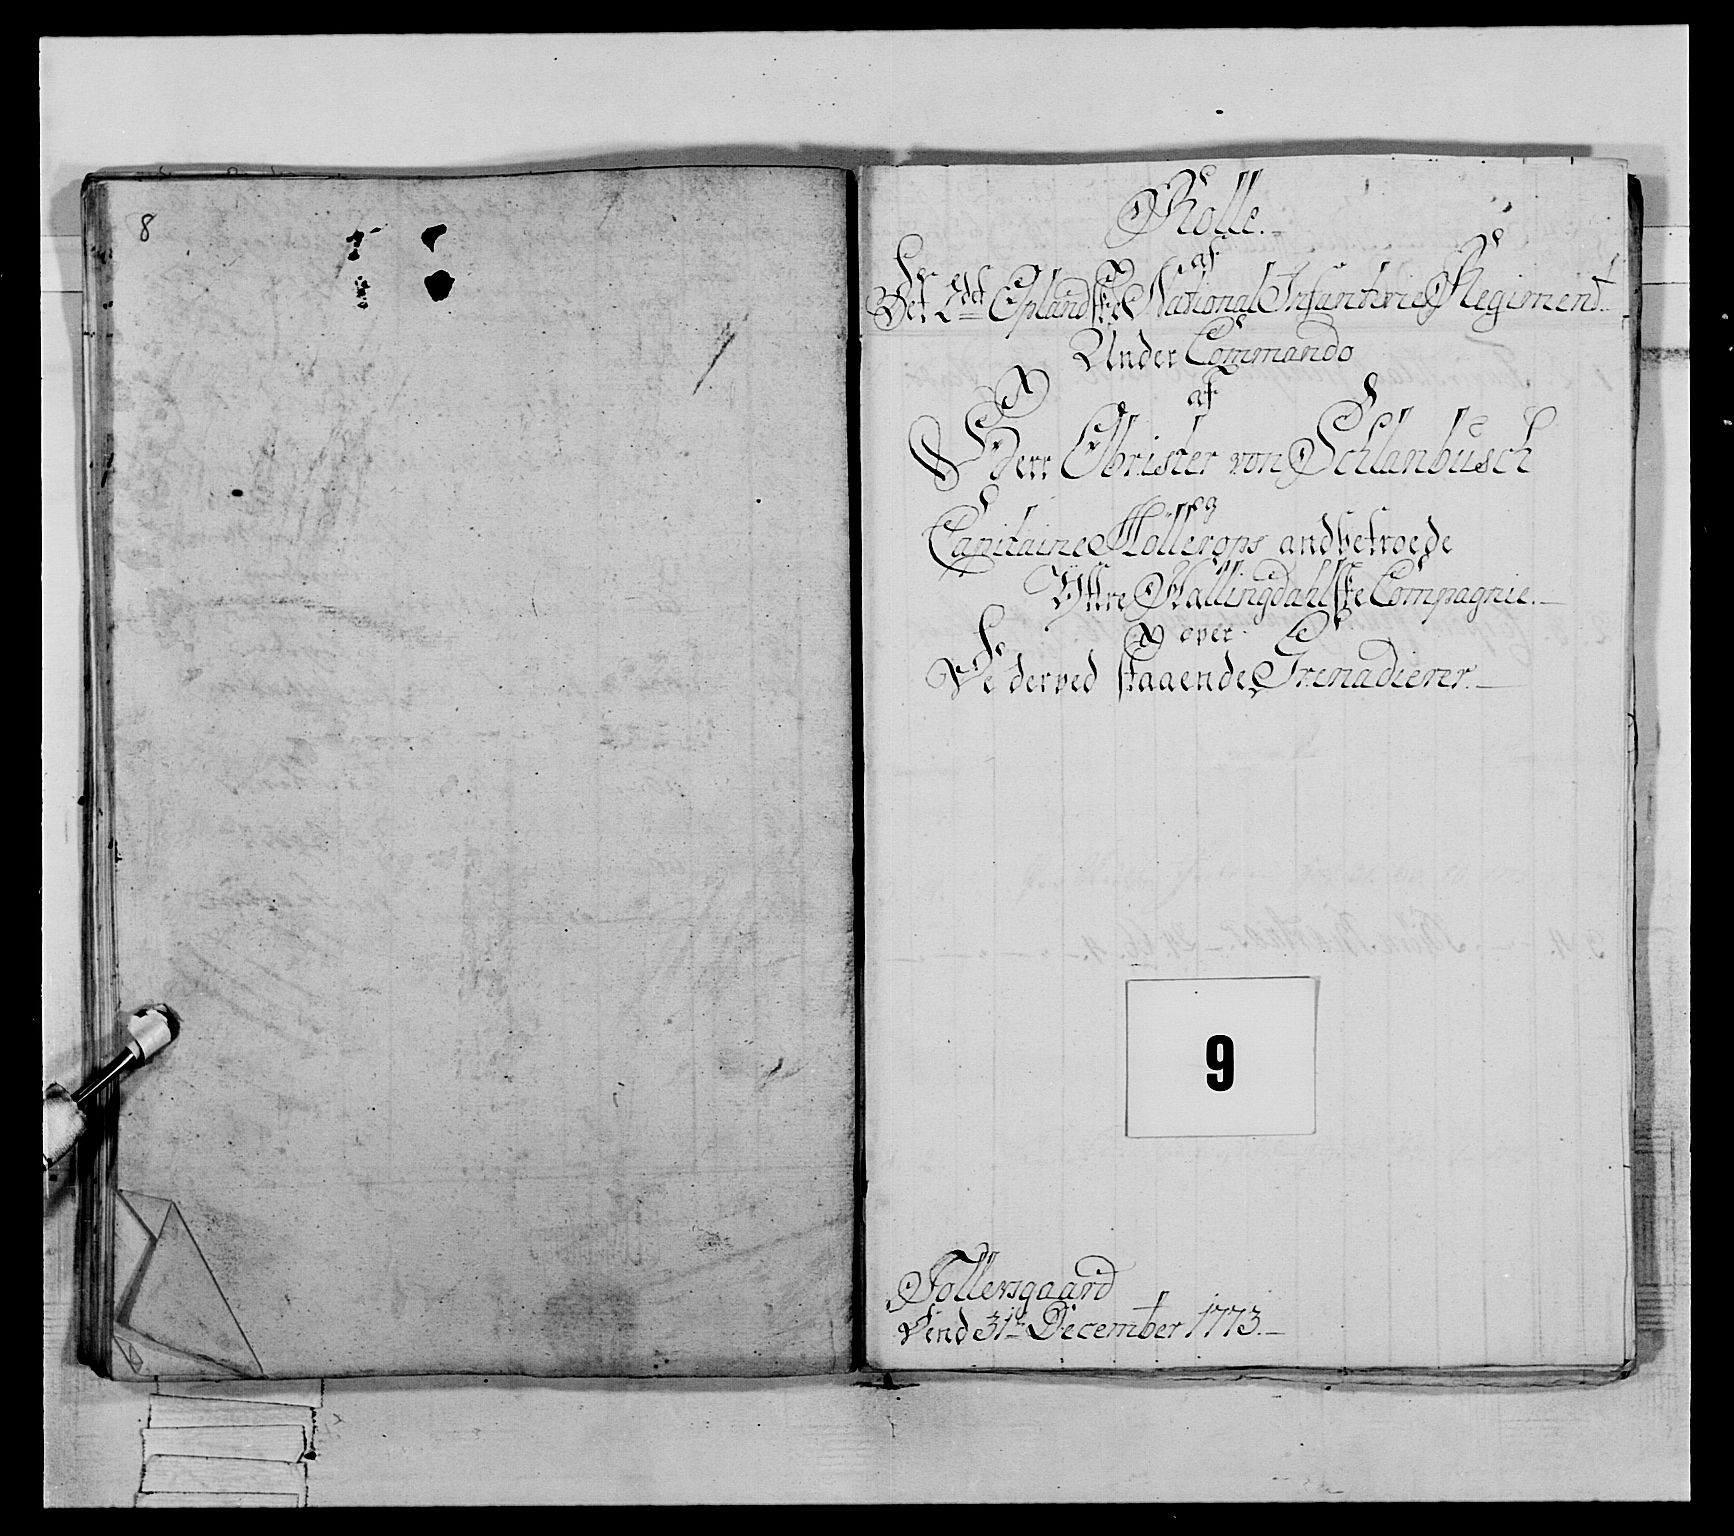 8
Rolle.
af
Det 2det Oplandske National Infanterie Regiment.
Under Commando
af
Herr Obrister von Schlanbusch
og
Capitaine Møllerops andbetroede
Yttre Hallingdahlske Compagnie.
over
De derved staaende Grenadierer.
9
Tollersgaard
Dend 31te December 1773.